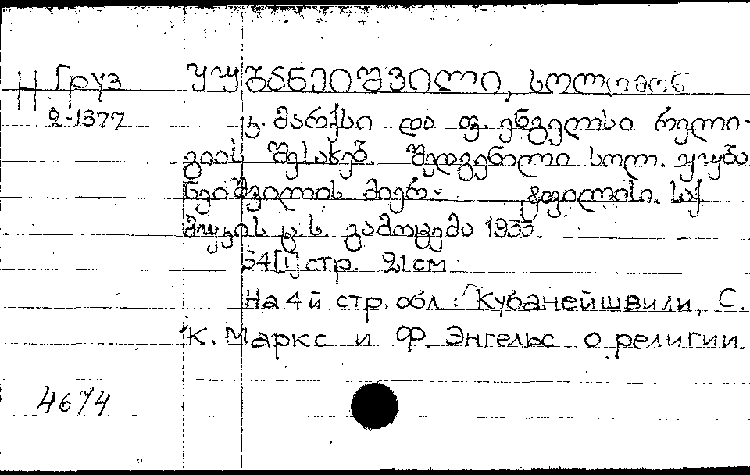 Н Груз ყუბანეიშვილი, სოლომონ
2-1377 კ. მარქსი და ფ. ენგელსი რელი-
გიის შესახებ. შედგენილი სოლ. ყუბა
ნეიშვილის მიერ. ტფილისი. საქ
მუკის ც. ს. გამოცემა 1933.
54[1] стр. 21 см
На 4й стр. обл: Кубанейшвили, С.
К. Маркс и Ф. Энгельс о религии.
4674